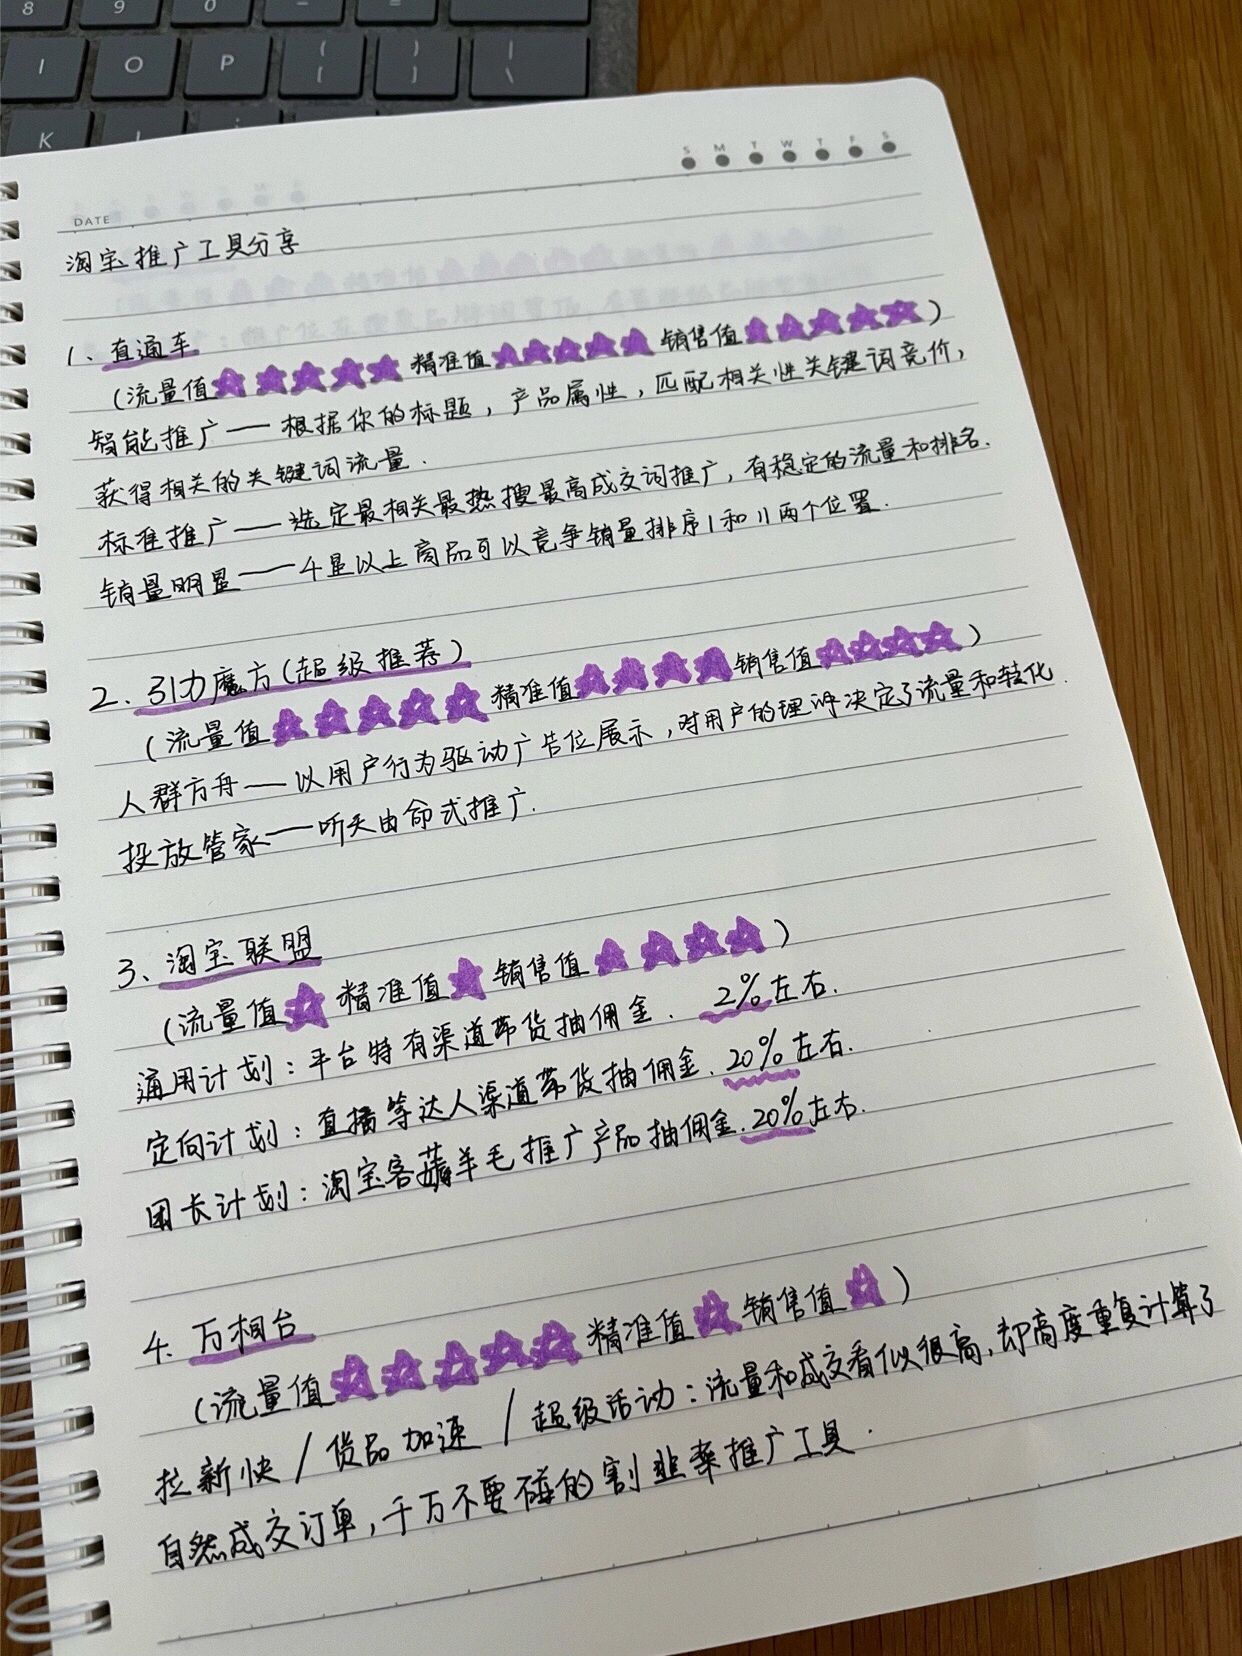 8 9 0 - =
I O P { [ } ] | \
K L ;
S M T W T F S
DATE
淘宝推广工具分享
1、直通车
(流量值★★★★★ 精准值★★★★★ 销售值★★★★★)
智能推广——根据你的标题，产品属性，匹配相关性关键词竞价，
获得相关的关键词流量.
标准推广——选定最相关最热搜最高成交词推广，有稳定的流量和排名.
销量明星——4星以上商品可以竞争销量排序1和11两个位置.
2、引力魔方(超级推荐)
(流量值★★★★★ 精准值★★★★ 销售值★★★★)
人群方舟——以用户行为驱动广告位展示，对用户的理解决定了流量和转化.
投放管家——听天由命式推广.
3、淘宝联盟
(流量值★ 精准值★ 销售值★★★★)
通用计划：平台特有渠道带货抽佣金. 2%左右.
定向计划：直播等达人渠道带货抽佣金. 20%左右.
团长计划：淘宝客薅羊毛推广产品抽佣金. 20%左右.
4. 万相台
(流量值★★★★★ 精准值★ 销售值★)
拉新快/货品加速/超级活动：流量和成交看似很高，却高度重复计算了
自然成交订单，千万不要碰的割韭菜推广工具.